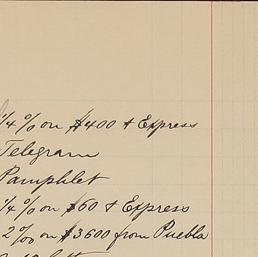 1/4 % on $400 & Express
Telegram
Pamphlet
1/4 % on $60 & Express
2 % on $3600 from Puebla